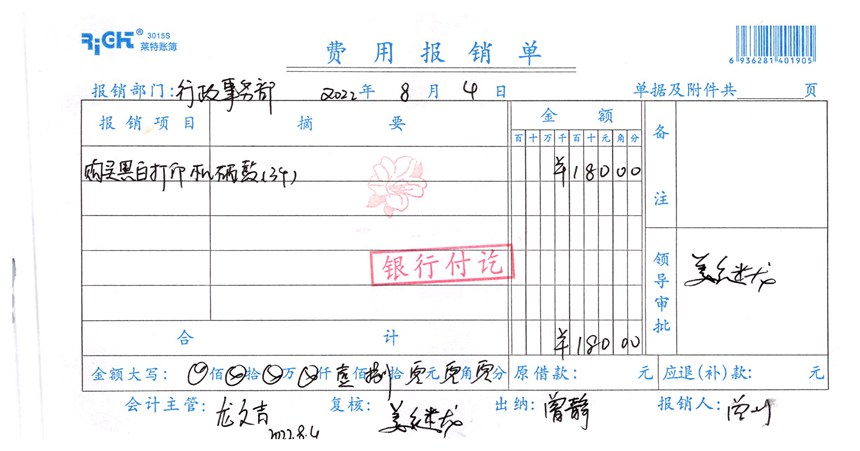 RiGHT® 3015S
莱特账簿
费用报销单
6 936281 401905
报销部门:行政事务部 2022年 8月 4日 单据及附件共 页
报销项目 摘要 金额 备注
百十万千百十元角分
购买黑白打印机硒鼓(3个) ¥18000
银行付讫
领导审批
合计 ¥18000
金额大写: 佰 拾 万 仟壹佰捌拾零元零角零分 原借款: 元 应退(补)款: 元
会计主管:龙文吉 复核: 出纳:曾静 报销人:
2022.8.4